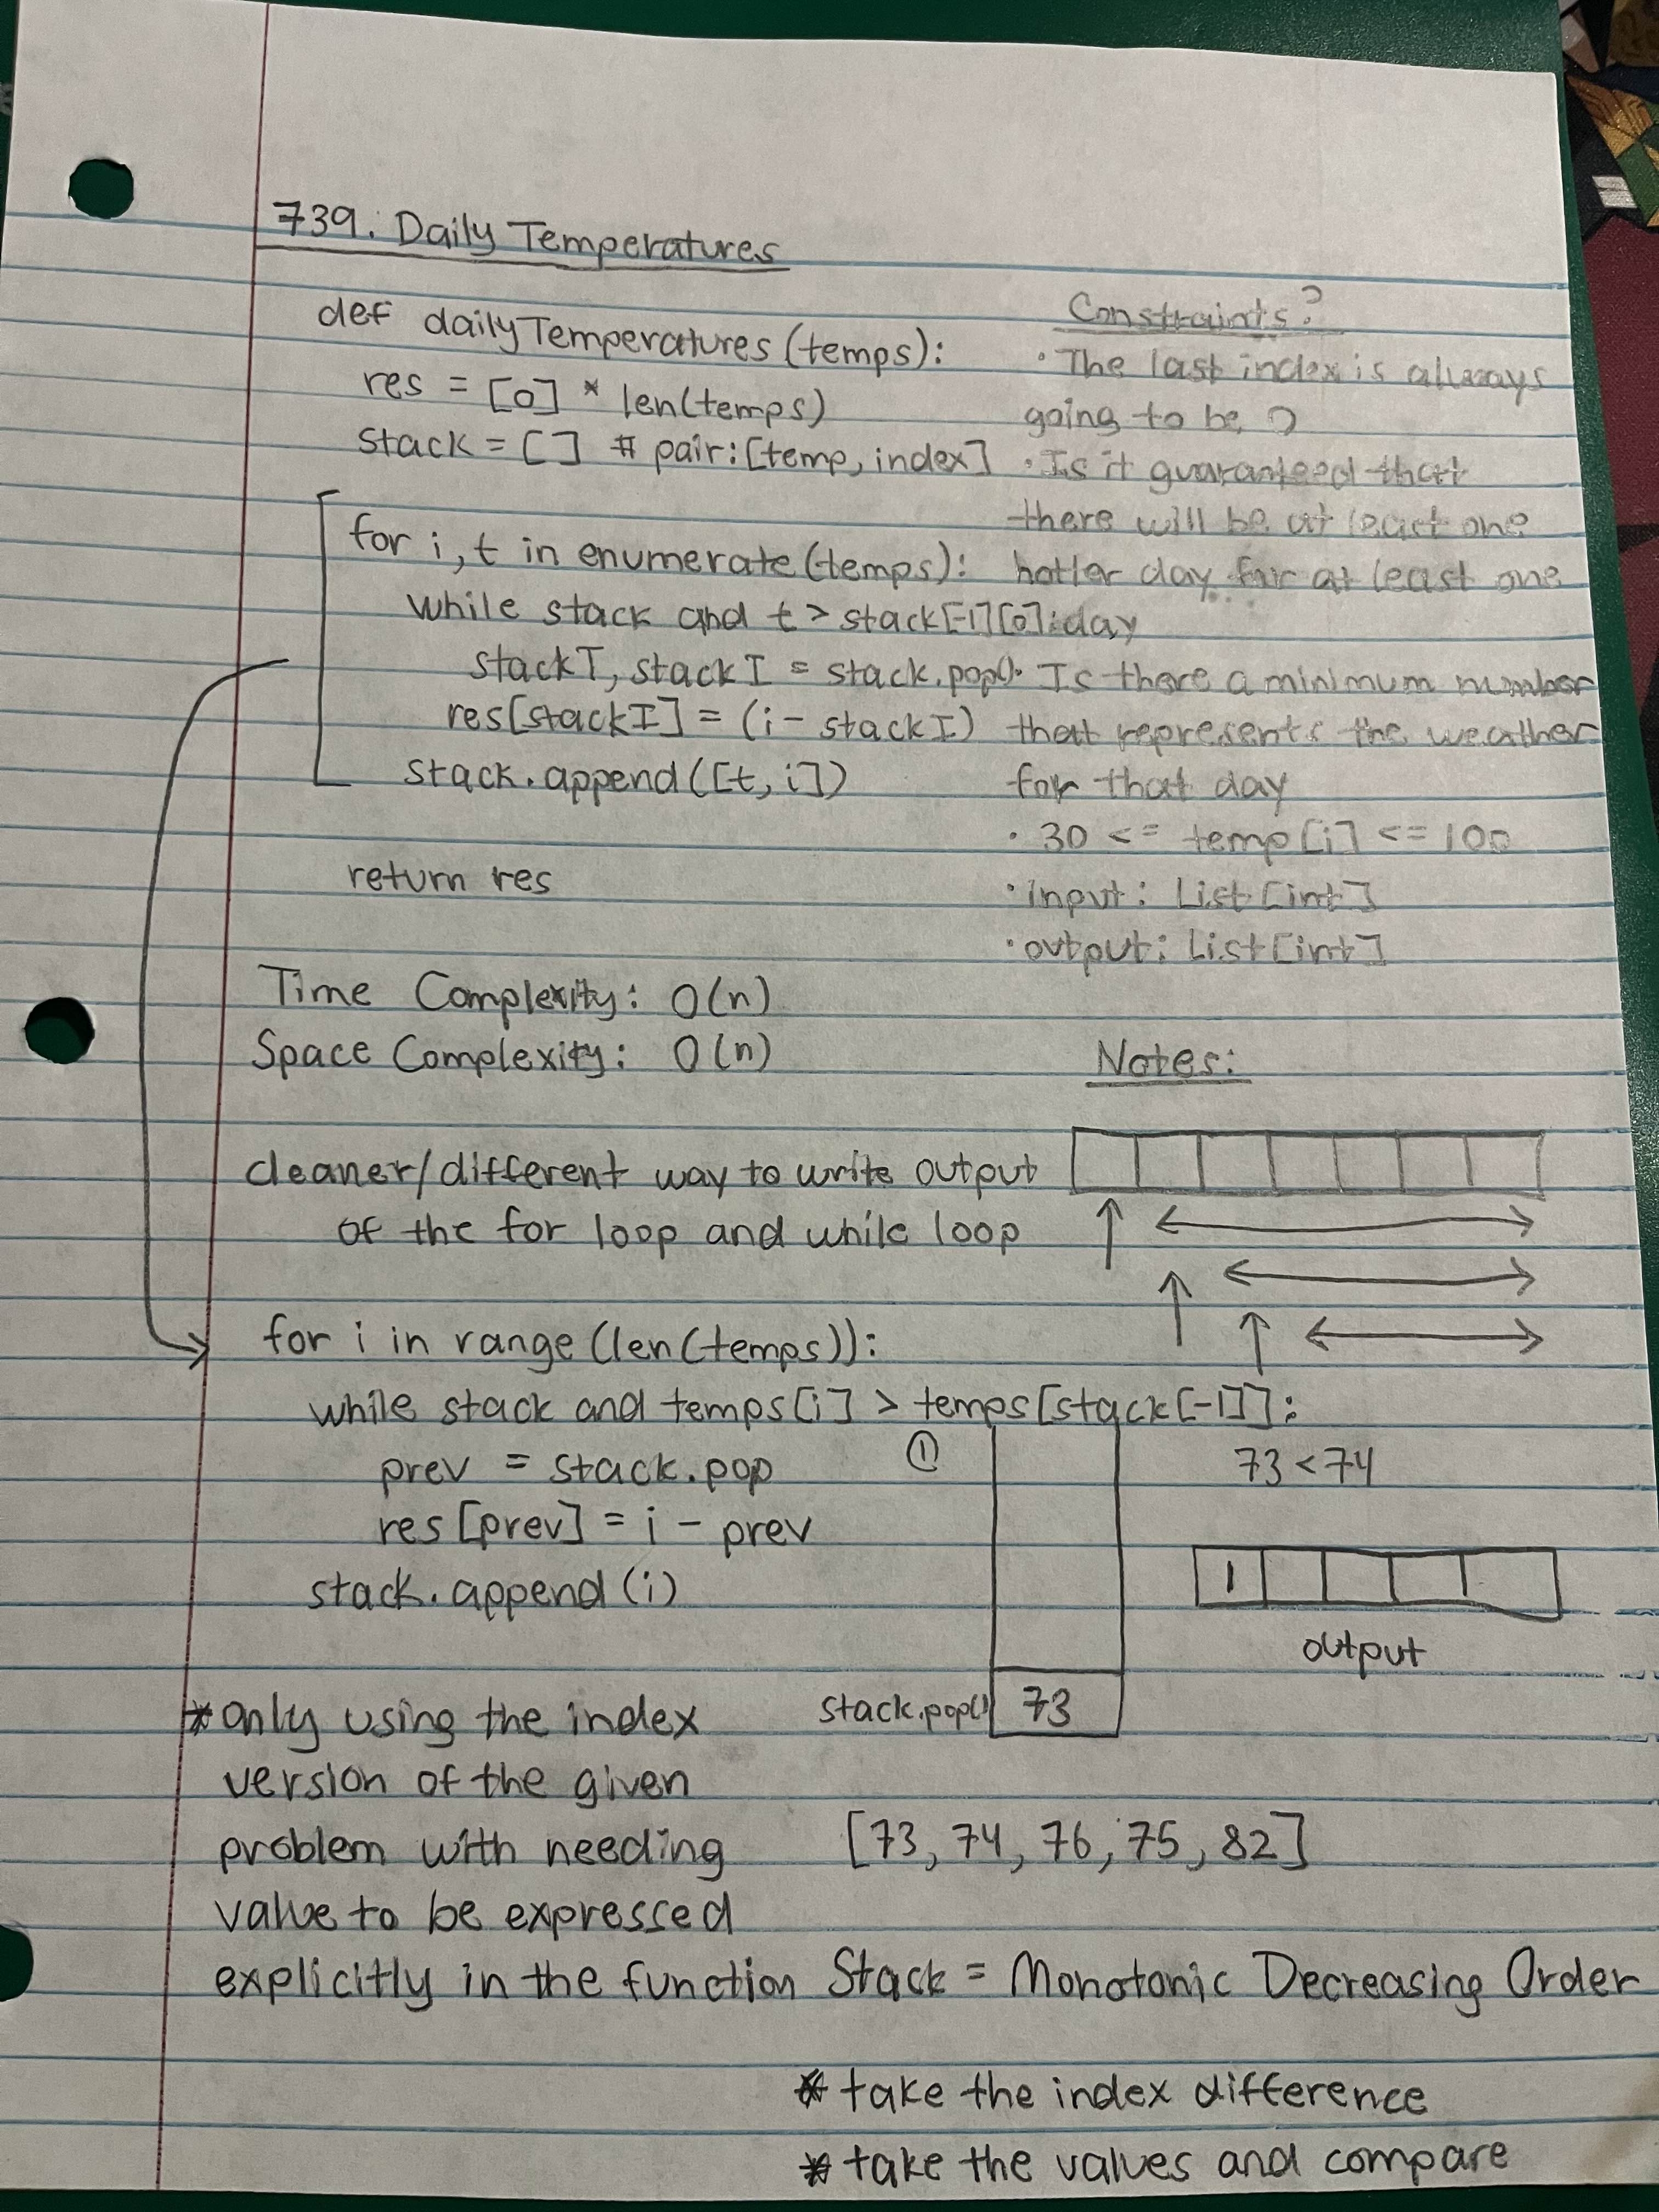 739. Daily Temperatures
def dailyTemperatures(temps):
res = [0] * len(temps)
stack = [] # pair: [temp, index]
for i, t in enumerate(temps):
while stack and t > stack[-1][0]:
stackT, stackI = stack.pop()
res[stackI] = (i - stackI)
stack.append([t, i])
return res
Constraints?
· The last index is always
going to be 0
· Is it guaranteed that
there will be at least one
hotter day for at least one
day
· Is there a minimum number
that represents the weather
for that day
· 30 <= temp[i] <= 100
· input: List[int]
· output: List[int]
Time Complexity: O(n)
Space Complexity: O(n)
cleaner/different way to write output
of the for loop and while loop
for i in range(len(temps)):
while stack and temps[i] > temps[stack[-1]]:
prev = stack.pop
res[prev] = i - prev
stack.append(i)
* only using the index
version of the given
problem with needing
value to be expressed
explicitly in the function
Notes:
①
73 < 74
1
output
stack.pop() 73
[73, 74, 76, 75, 82]
Stack = Monotonic Decreasing Order
* take the index difference
* take the values and compare